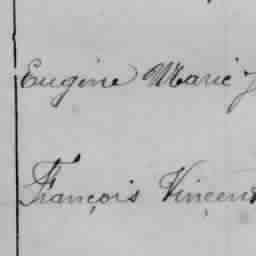 Eugène Marie
François Vincent